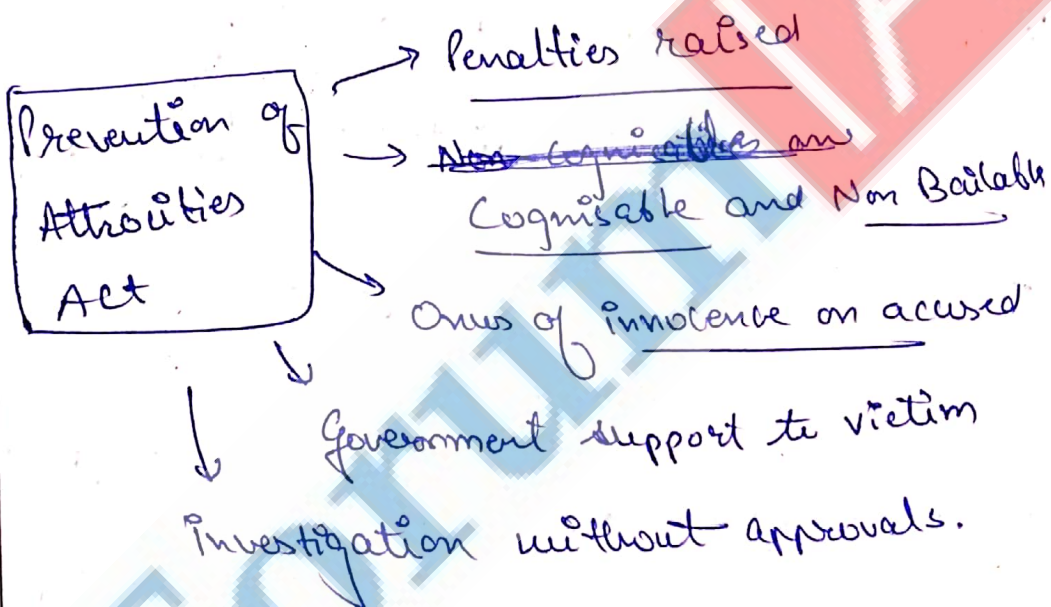 Prevention of
Attrocities
Act
→ Penalties raised
→ Non-
Cognisable and Non Bailable
Onus of innocence on accused
Government support to victim
investigation without approvals.
forum IA